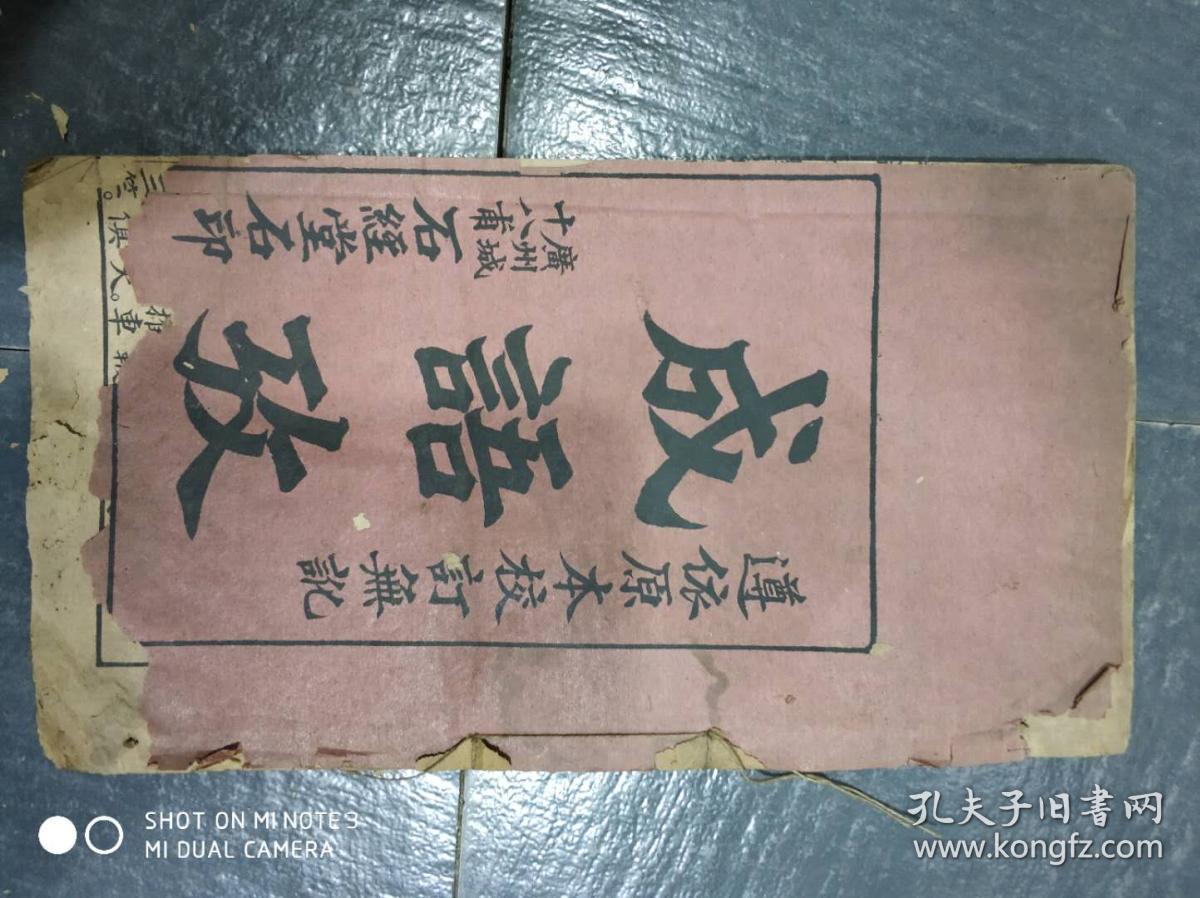 遵依原本校訂無訛
成語攷
廣州城
十八甫
石經堂石印
SHOT ON MI NOTE 3
MI DUAL CAMERA
孔夫子旧書网
www.kongfz.com